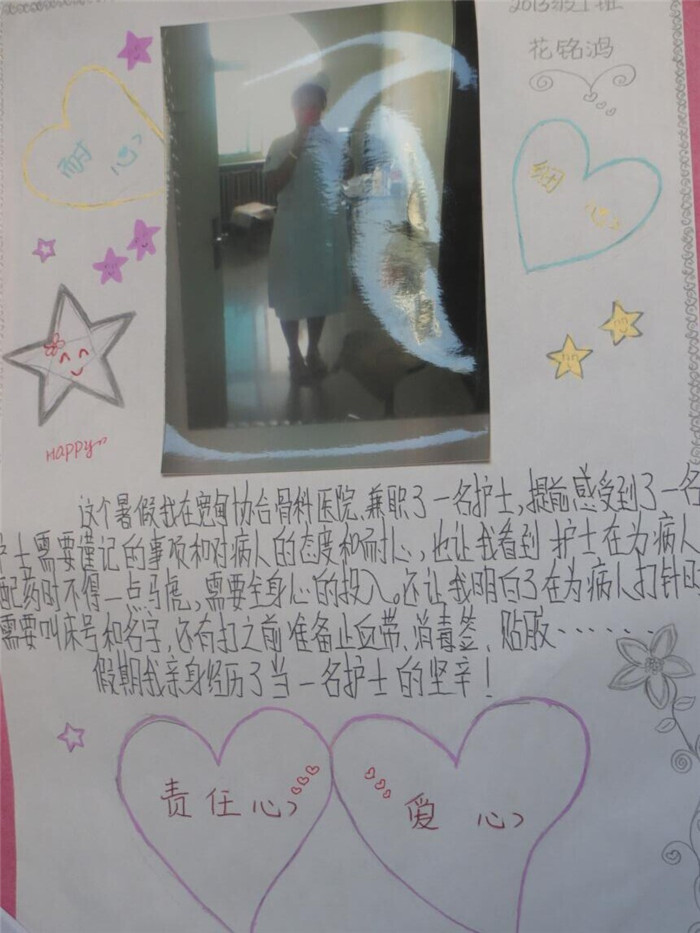 2013级1班
花铭鸿
耐心
细心
Happy
这个暑假我在宽甸协合骨科医院、兼职了一名护士,提前感受到了一名
护士需要谨记的事项和对病人的态度和耐心,也让我看到护士在为病人
配药时不得一点马虎,需要全身心的投入。还让我明白了在为病人打针时
需要叫床号和名字,还有打之前准备止血带、消毒签、贴胶……
假期我亲身经历了当一名护士的坚辛!
责任心
爱心